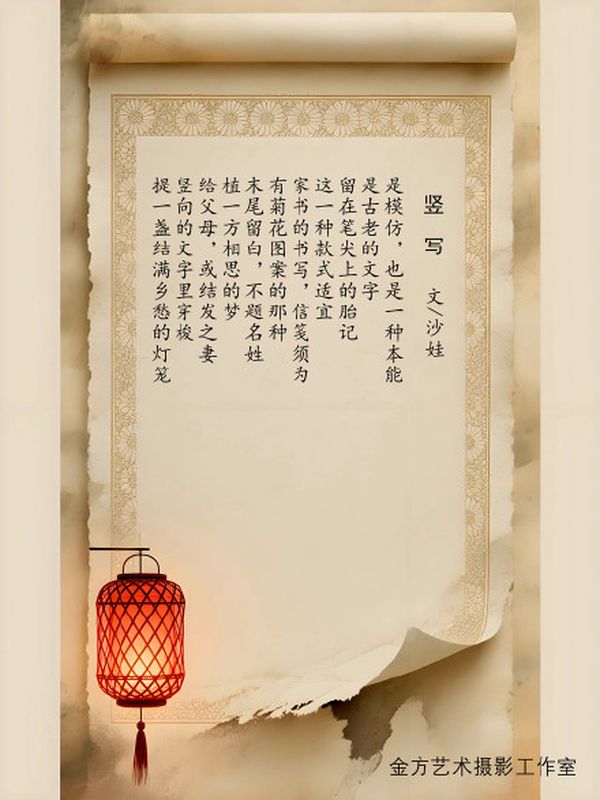 竖写
文/沙娃
是模仿，也是一种本能
是古老的文字
留在笔尖上的胎记
这一种款式适宜
家书的书写，信笺须为
有菊花图案的那种
末尾留白，不题名姓
植一方相思的梦
给父母，或结发之妻
竖向的文字里穿梭
提一盏结满乡愁的灯笼
金方艺术摄影工作室